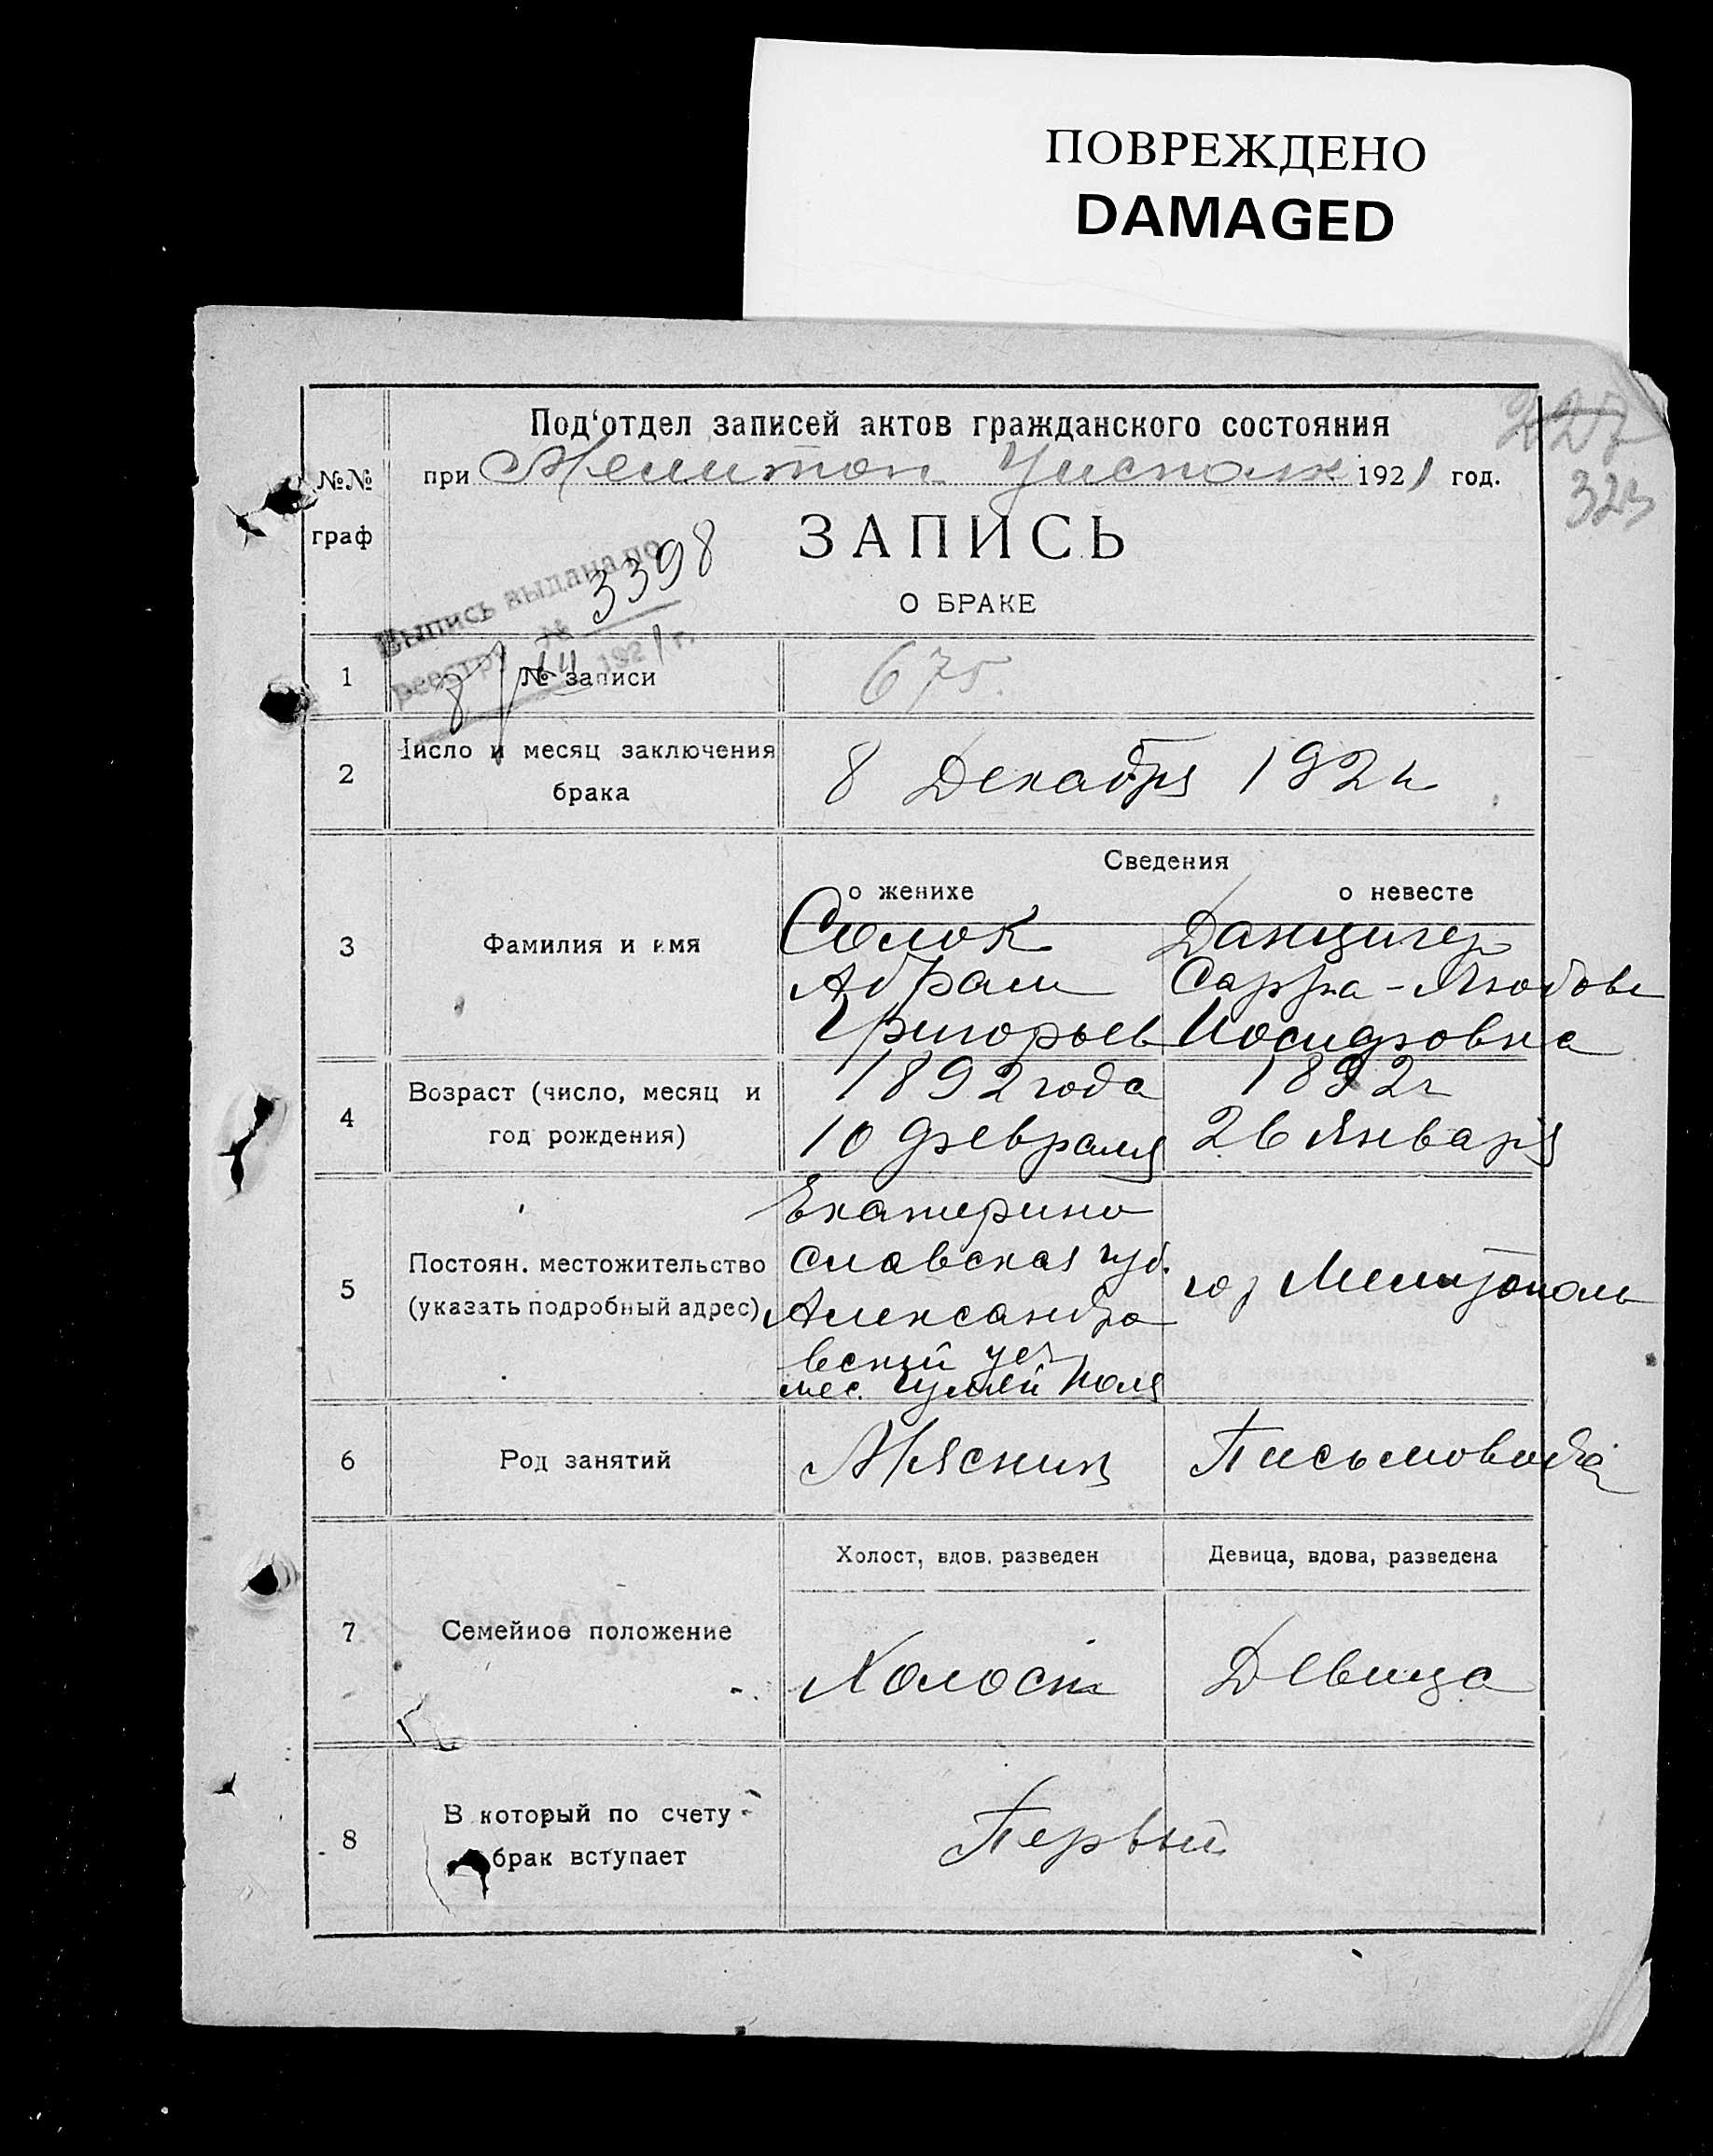 ПОВРЕЖДЕНО
DAMAGED
Под‘отдел записей актов гражданского состояния
№№
граф
при Мелитоп Уисполк 1921 год.
227
323
ЗАПИСЬ
О БРАКЕ
Выпись выдана по
реестру № 3398
8/XII 1921 г.
1 № записи 675.
2 Число и месяц заключения
брака
8 Декабря 192
Сведения
о женихе о невесте
3 Фамилия и имя
Солок Данцигер
Абрам Сарра-Любовь
Григорьев Иосифовна
4 Возраст (число, месяц и
год рождения)
1892 года 1892 г
10 февраля 26 Января
5 Постоян. местожительство
(указать подробный адрес)
Екатерино
славская губ.
Александро
вский уез
мес. Гуляй Поля
гор Мелитополь
6 Род занятий Мясник
Холост, вдов. разведен Девица, вдова, разведена
7 Семейное положение
Холост Девица
8 В который по счету
брак вступает
Первый